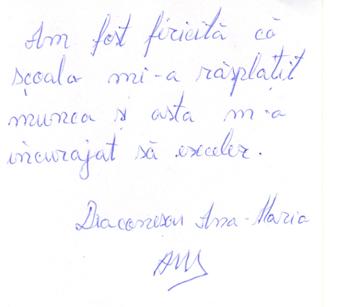 Am fost fericită că
școala mi-a răsplatit
munca și asta m-a
încurajat să exceler.
Diaconescu Ana-Maria